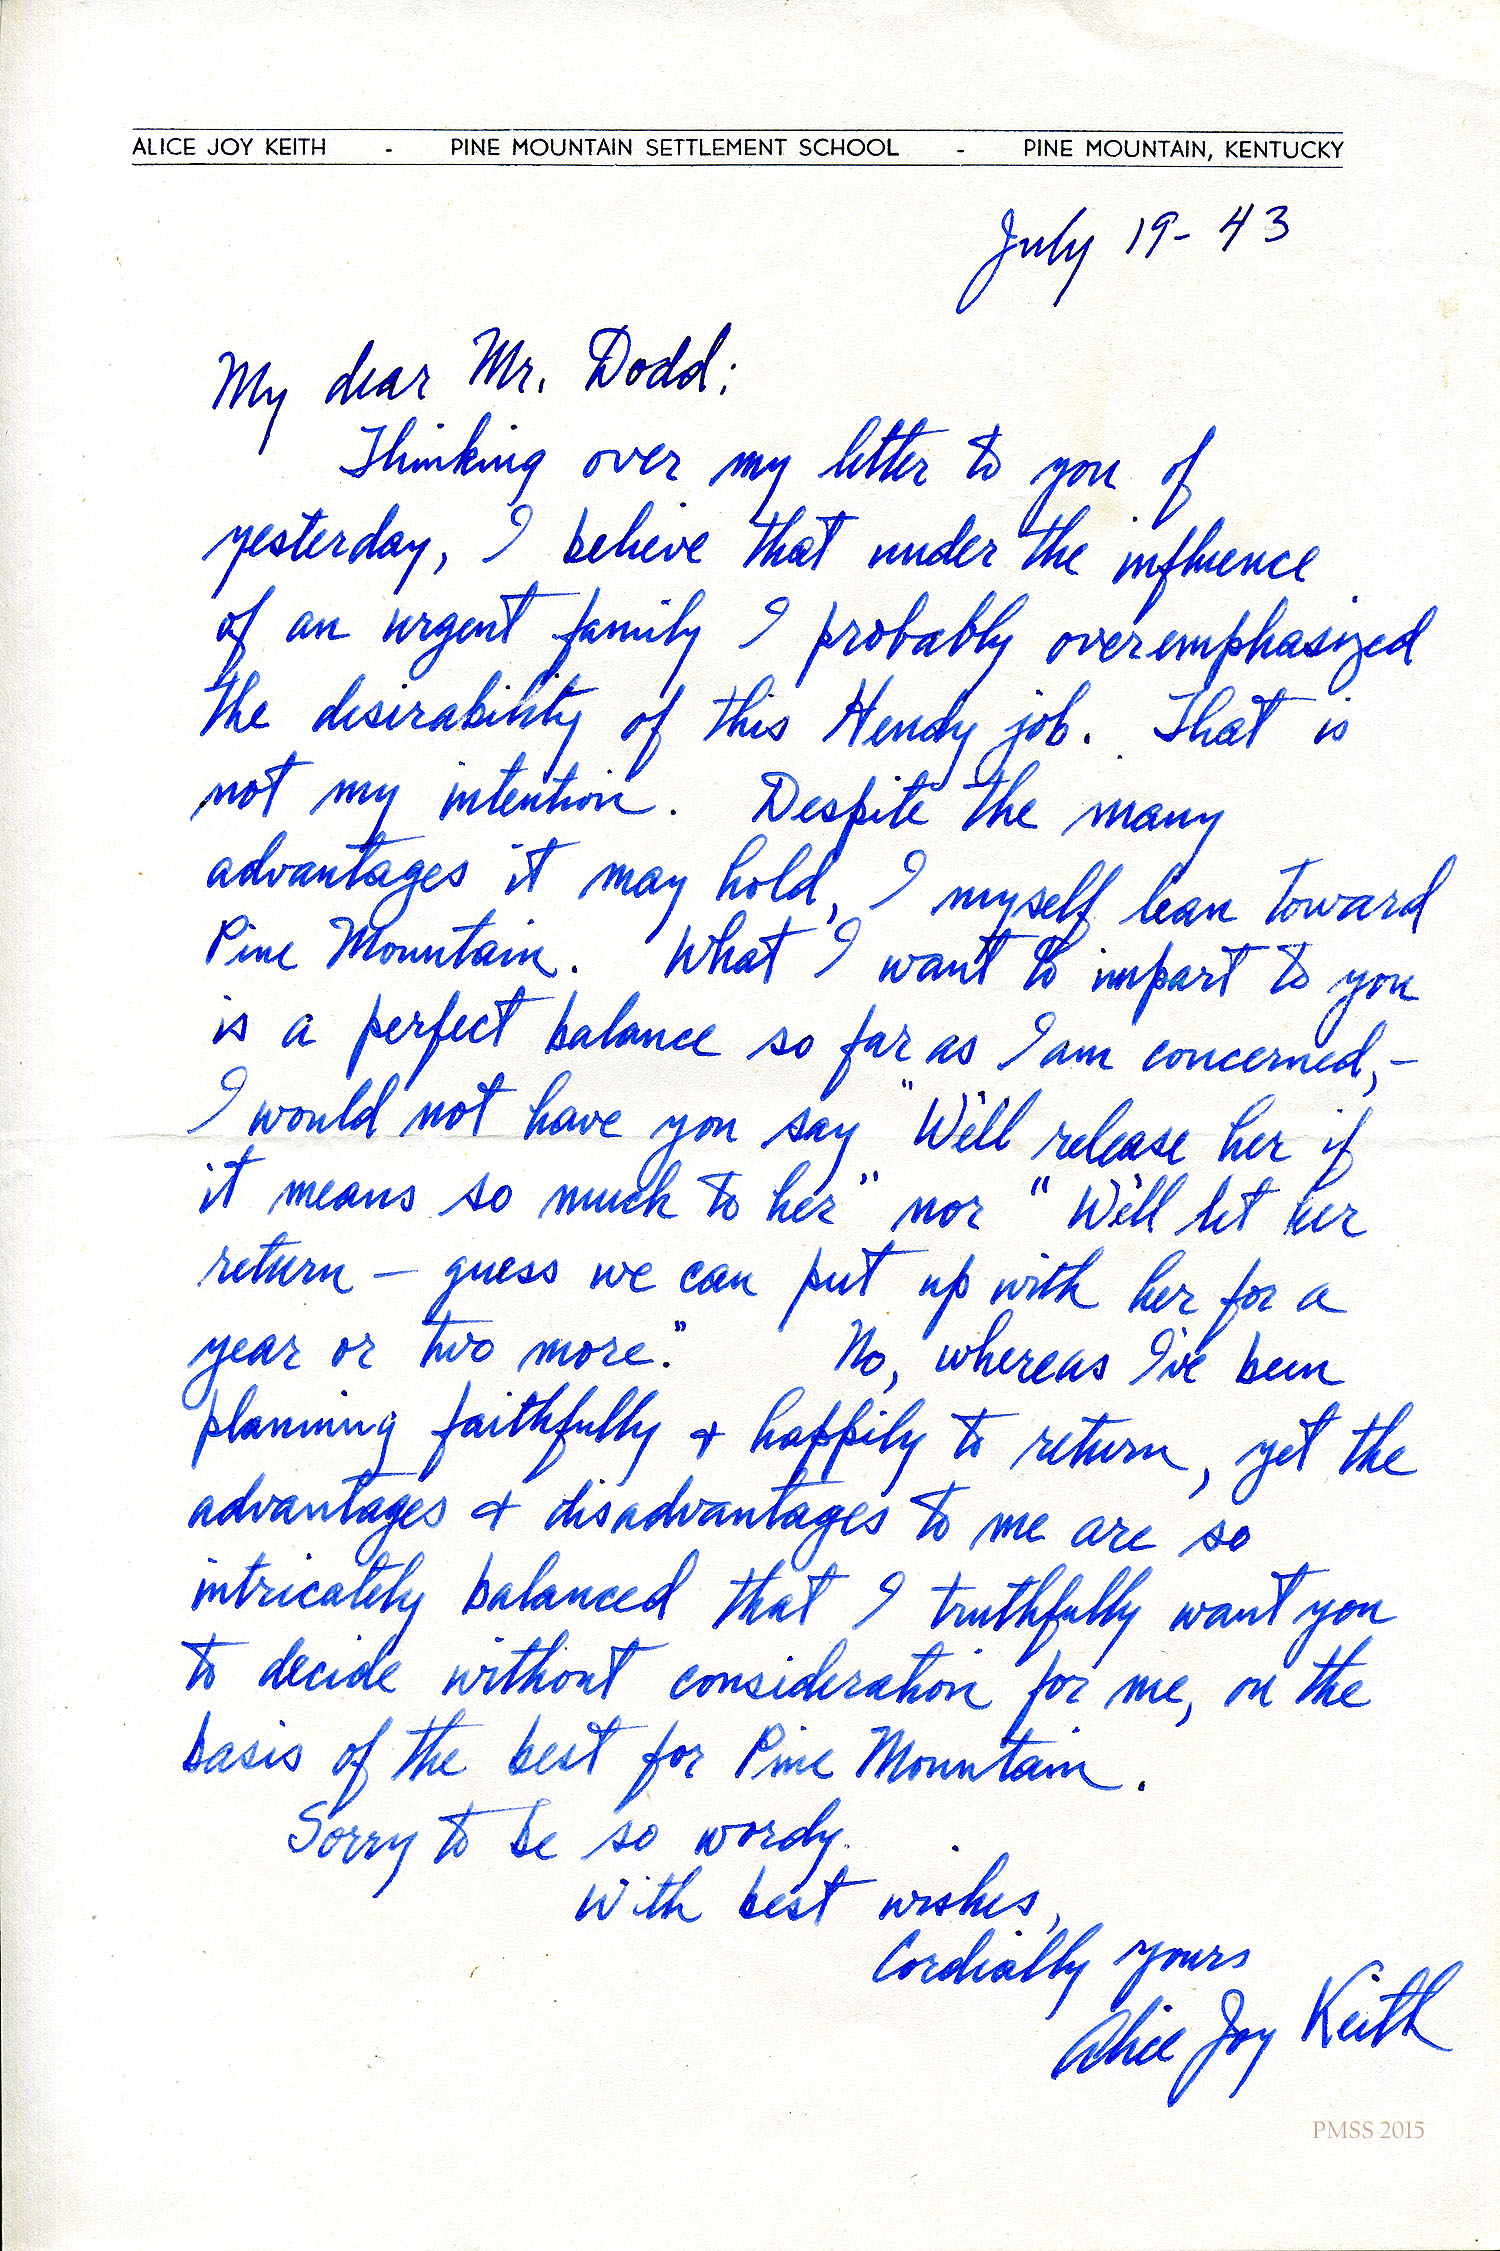 ALICE JOY KEITH - PINE MOUNTAIN SETTLEMENT SCHOOL - PINE MOUNTAIN, KENTUCKY
July 19-43
My dear Mr. Dodd:
Thinking over my letter to you of
yesterday, I believe that under the influence
of an urgent family I probably overemphasized
the desirability of this Hendy job. That is
not my intention. Despite the many
advantages it may hold, I myself lean toward
Pine Mountain. What I want to impart to you
is a perfect balance so far as I am concerned,-
I would not have you say "We'll release her if
it means so much to her" nor "We'll let her
return – guess we can put up with her for a
year or two more." No, whereas I've been
planning faithfully & happily to return, yet the
advantages & disadvantages to me are so
intricately balanced that I truthfully want you
to decide without consideration for me, on the
basis of the best for Pine Mountain.
Sorry to be so wordy.
With best wishes,
Cordially yours
Alice Joy Keith
PMSS 2015